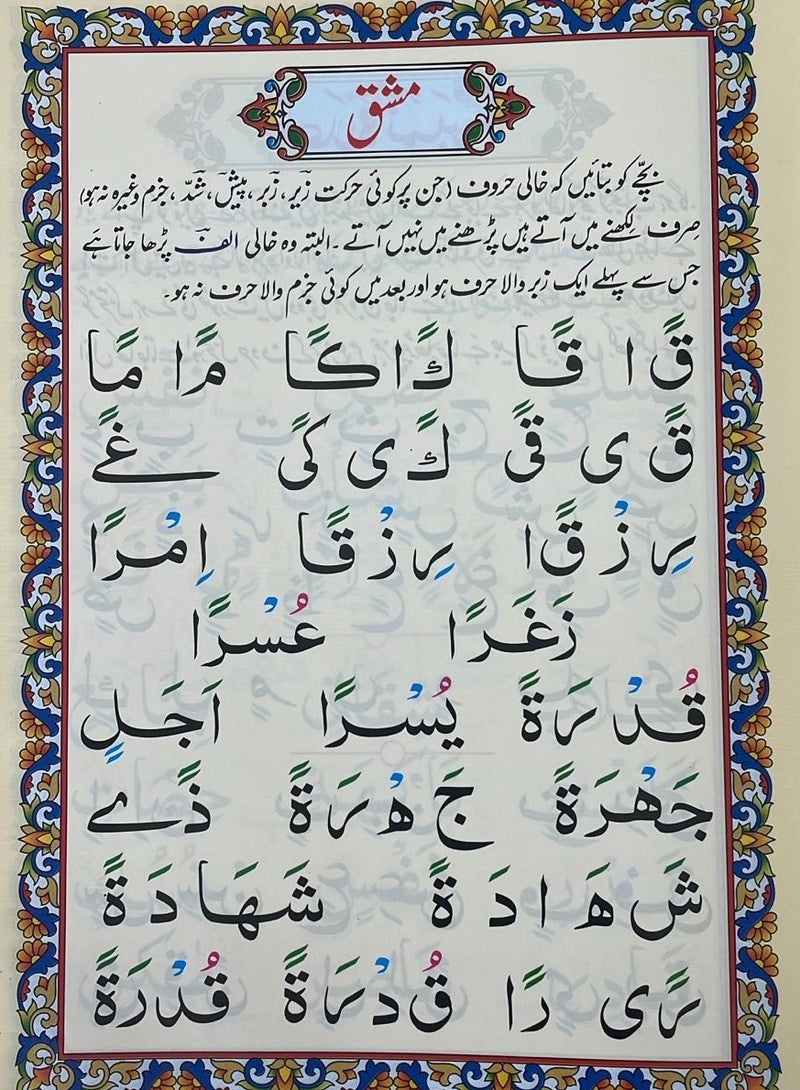 مشق
بچّے کو بتائیں کہ خالی حروف (جن پر کوئی حرکت زیر، زبر، پیش، شدّ، جزم وغیرہ نہ ہو)
صِرف لکھنے میں آتے ہیں پڑھنے میں نہیں آتے ۔ البتہ وہ خالی الف پڑھا جاتا ہے
جس سے پہلے ایک زبر والا حرف ہو اور بعد میں کوئی جزم والا حرف نہ ہو۔
قً ا قًا كً ا كًا مً ا مًا
قً ی قًی كً ی كًی غًے
رِ زْ قًا رِ زْ قًا اِمْرًا
زَغَرًا عُسْرًا
قُدْرَةً یُسْرًا اَجَلٍ
جَهْرَةً جَ هْ رَ ةً ذًے
شَ هَ ا دَ ةً شَهَا دَ ةً
رً ی رًا قُ دْ رَ ةً قُدْرَةً